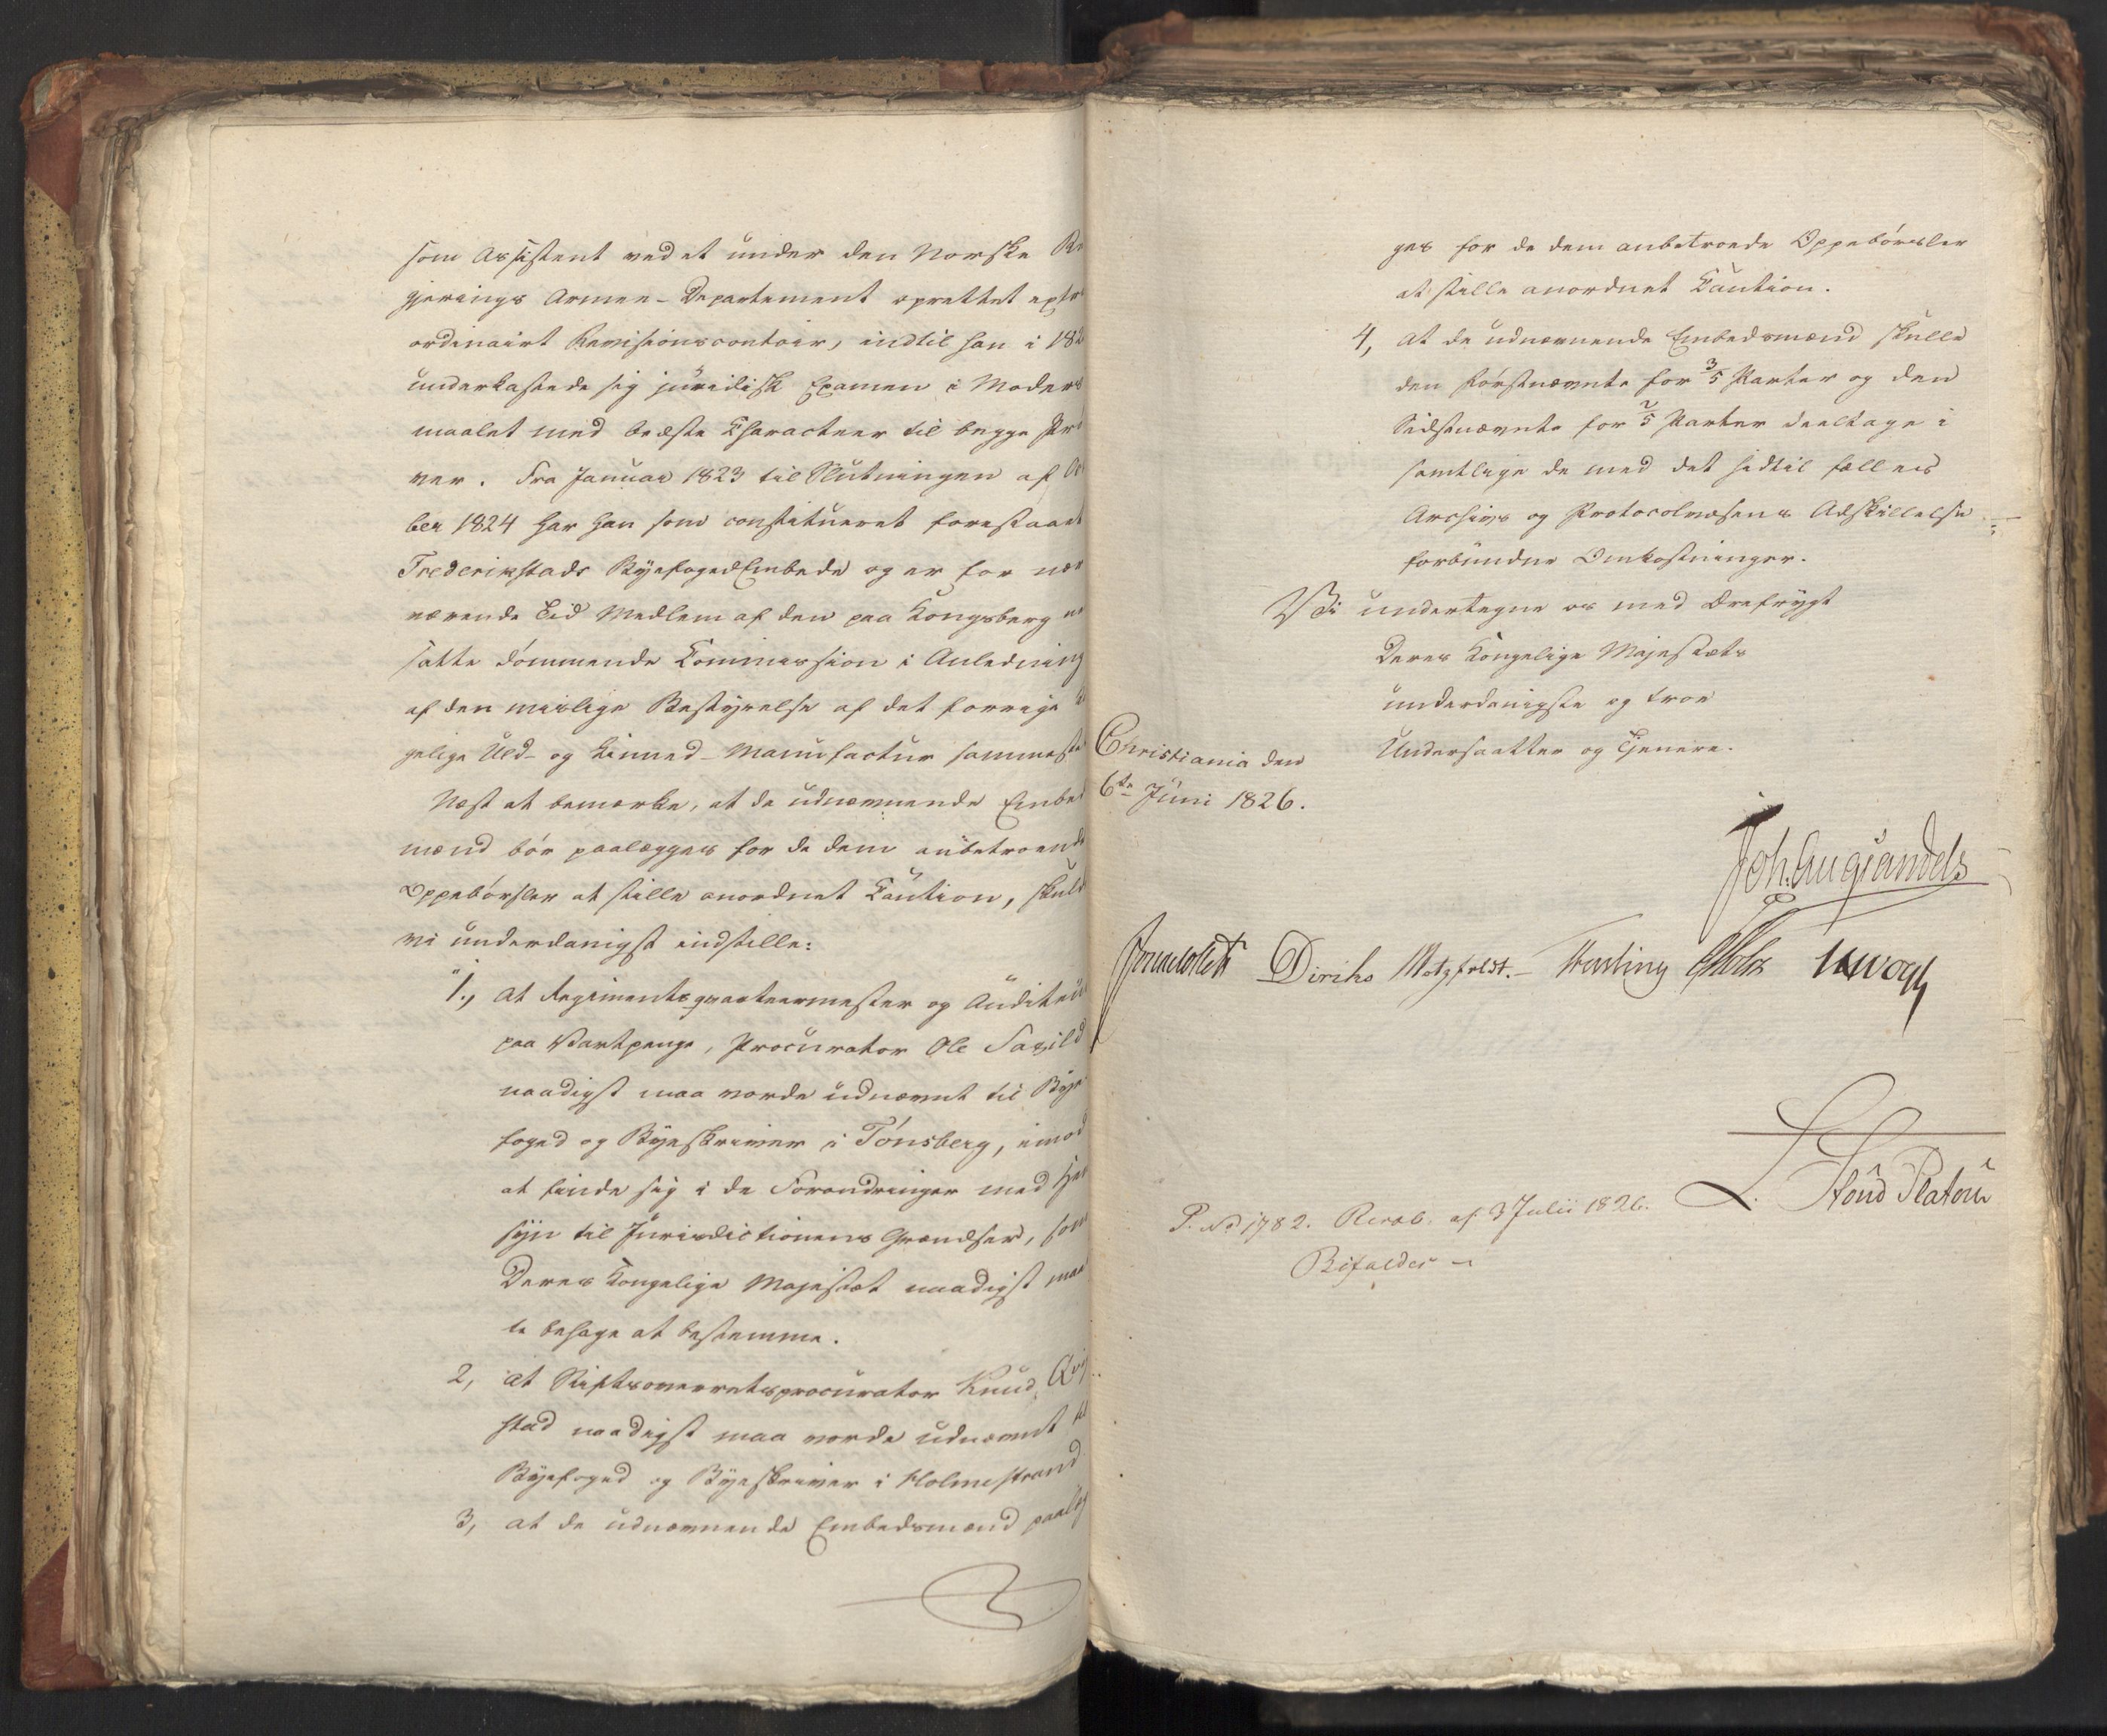 som Assistent ved et under den Norske Re
gjerings Armee-Departement oprettet extra
ordinairt Revisionscontoir, indtil han i 182
underkastede sig juridisk Examen i Moders
maalet med bedste Characteer til begge Prö
ver. Fra Januar 1823 til Slutningen af
ber 1824 har han som constitueret forestaaet
Frederikstads ByefogedEmbede og er for nær
værende Tid Medlem af den paa Kongsberg
satte dömmende Commission i Anledning
af den mislige Bestyrelse af det forrige
gelige Uld- og Linned-Manufactur sammeste
Næst at bemærke, at de udnævnende Embed
mænd bör paalægges for de dem anbetroende
Oppebörsler at stille anordnet Caution, skuld
vi underdanigst indstille:
1., at Regimentsqvarteermester og Auditeur
paa Vartpenge, Procurator Ole Savild
naadigst maa vorde udnævnt til Bye
foged og Byeskriver i Tönsberg, imod
at finde sig i de Forandringer med Hen
syn til Jurisdictionens Grændser, som
Deres Kongelige Majestæt naadigst maat
te behage at bestemme.
2, at Stiftsoverretsprocurator Knud Qvi
stad naadigst maa vorde udnævnt til
Byefoged og Byeskriver i Holmestrand
3, at de udnævnende Embedsmænd paalæg
ges for de dem anbetroede Oppebörsler
at stille anordnet Caution.
4, at de udnævnende Embedsmænd skulle
den förstnævnte for 3/5 Parter og den
Sidstnævnte for 2/5 Parter deeltage i
samtlige de med det hidtil fælleds
Archivs og Protocolvæsens Adskillelse
forbundne Omkostninger.
Vi undertegne os med Ærefrygt
Deres Kongelige Majestæts
underdanigste og troe
Undersaatter og Tjenere.
Christiania den
6te Juni 1826.
Joh. Aug Sandels
Sommerfeldt Diriks Motzfeldt. Fasting Holst
L. Stoud Platou
P. No 1782. Resol. af 3 Julii 1826.
Bifaldes